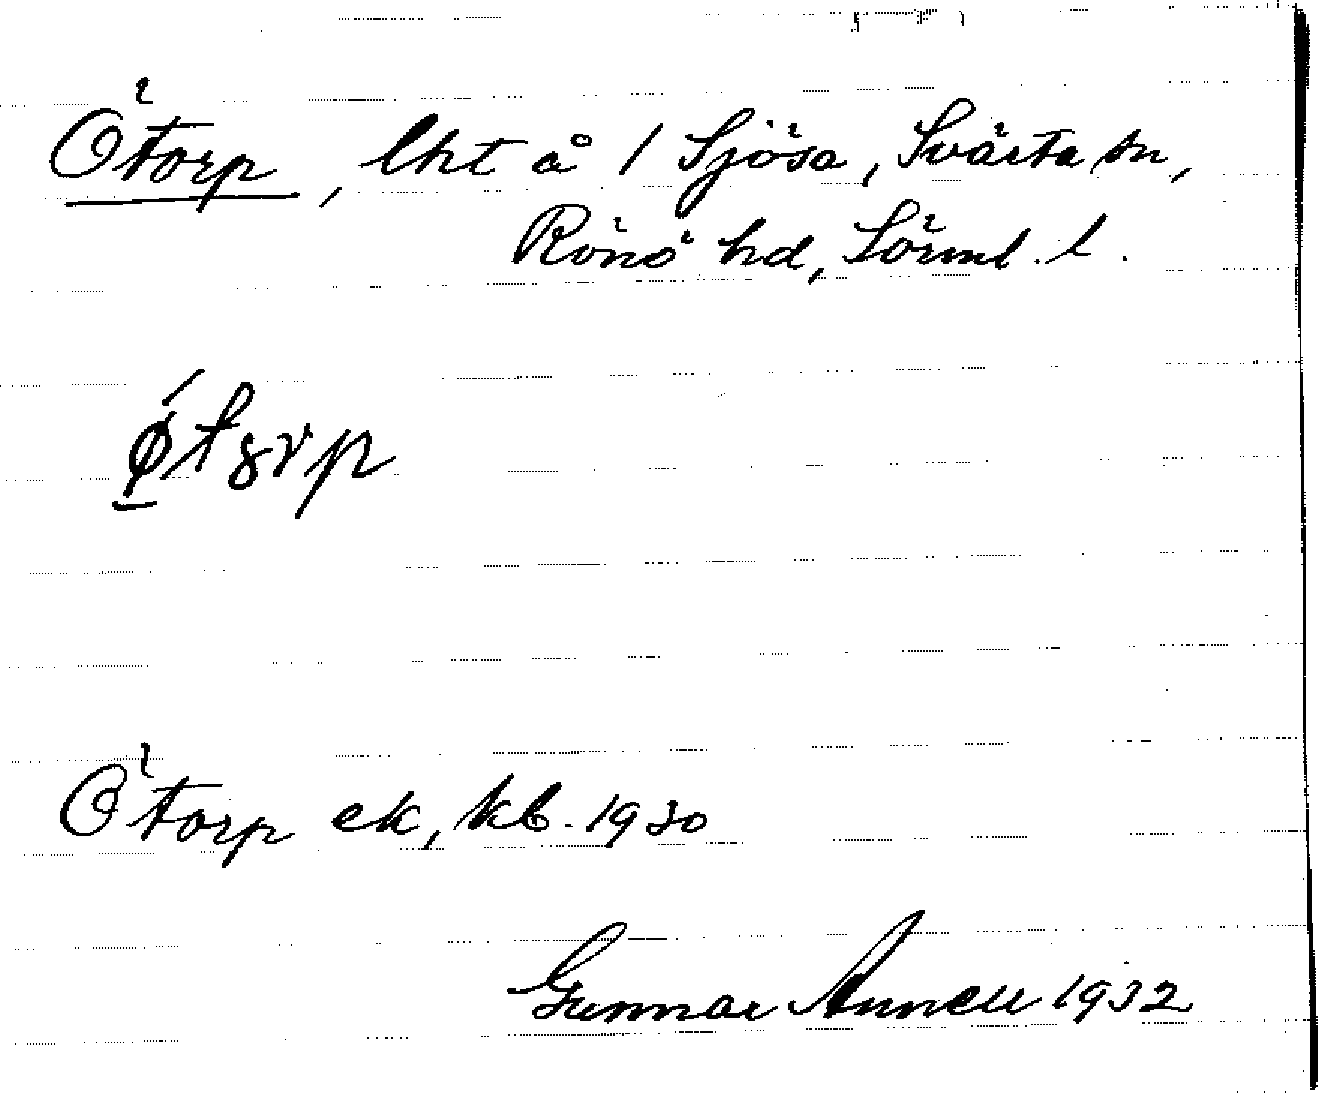 Ötorp, lht å 1 Sjösa, Svärta sn,
Rönö hd, Sörml. l.
Ötorp ek, kb. 1930
Gunnar Annell 1932